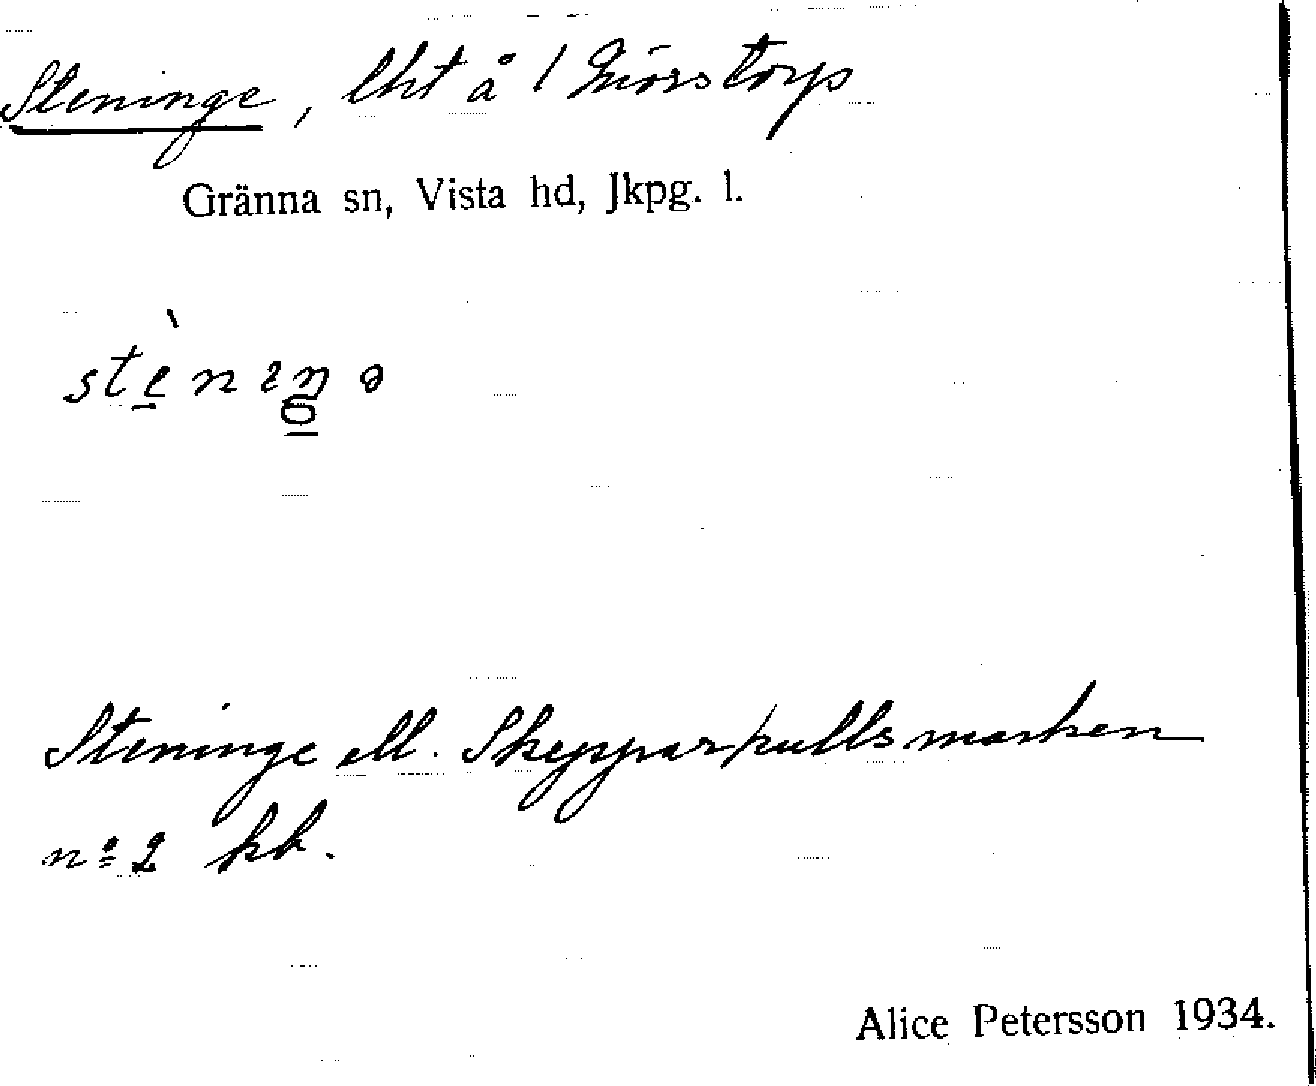 Steninge, lht å 1 Mörstorp
Gränna sn, Vista hd, Jkpg. l.
stèniŋə
Steninge ell. Skepparkullsmarken
nº 2 kk.
Alice Petersson 1934.